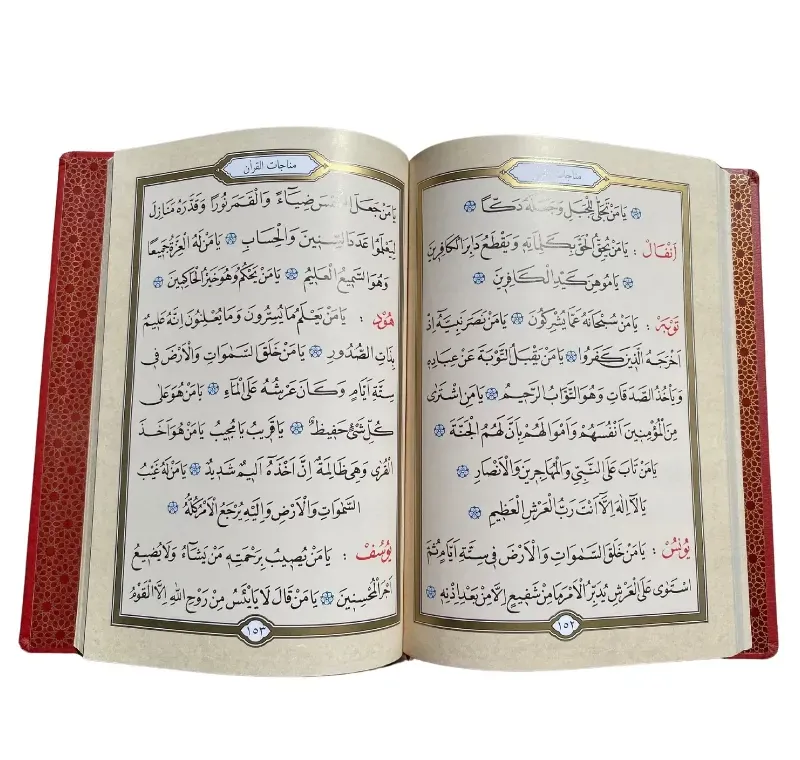 مناجات
يَامَنْ تَجَلّٰى لِلْجَبَلِ وَجَعَلَهُ دَكًّا
اَنْفَالْ : يَامَنْ يُحِقُّ الْحَقَّ بِكَلِمَاتِهِ وَيَقْطَعُ دَابِرَ الْكَافِرِينَ
يَامُوهِنَ كَيْدِ الْكَافِرِينَ
تَوْبَه : يَامَنْ سُبْحَانَهُ عَمَّا يُشْرِكُونَ يَامَنْ نَصَرَ نَبِيَّهُ اِذْ
اَخْرَجَهُ الَّذِينَ كَفَرُوا يَامَنْ يَقْبَلُ التَّوْبَةَ عَنْ عِبَادِهِ
وَيَأْخُذُ الصَّدَقَاتِ وَهُوَ التَّوَّابُ الرَّحِيمُ يَامَنِ اشْتَرٰى
مِنَ الْمُؤْمِنِينَ اَنْفُسَهُمْ وَاَمْوَالَهُمْ بِاَنَّ لَهُمُ الْجَنَّةَ
يَامَنْ تَابَ عَلَى النَّبِيِّ وَالْمُهَاجِرِينَ وَالْاَنْصَارِ
يَالَااِلٰهَ اِلَّا اَنْتَ رَبُّ الْعَرْشِ الْعَظِيمِ
يُونُسْ : يَامَنْ خَلَقَ السَّمٰوَاتِ وَالْاَرْضَ فِى سِتَّةِ اَيَّامٍ ثُمَّ
اسْتَوٰى عَلَى الْعَرْشِ يُدَبِّرُ الْاَمْرَ مَا مِنْ شَفِيعٍ اِلَّا مِنْ بَعْدِ اِذْنِهِ
١٥٢
مناجات القرآن
يَامَنْ جَعَلَ الشَّمْسَ ضِيَاءً وَالْقَمَرَ نُورًا وَقَدَّرَهُ مَنَازِلَ
لِيَعْلَمُوا عَدَدَ السِّنِينَ وَالْحِسَابِ يَامَنْ لَهُ الْعِزَّةُ جَمِيعًا
وَهُوَ السَّمِيعُ الْعَلِيمُ يَامَنْ يَحْكُمُ وَهُوَ خَيْرُ الْحَاكِمِينَ
هُودْ : يَامَنْ يَعْلَمُ مَا يُسِرُّونَ وَمَا يُعْلِنُونَ اِنَّهُ عَلِيمٌ
بِذَاتِ الصُّدُورِ يَامَنْ خَلَقَ السَّمٰوَاتِ وَالْاَرْضَ فِى
سِتَّةِ اَيَّامٍ وَكَانَ عَرْشُهُ عَلَى الْمَاءِ يَامَنْ هُوَ عَلٰى
كُلِّ شَىْءٍ حَفِيظٌ يَاقَرِيبُ يَامُجِيبُ يَامَنْ هُوَ اَخَذَ
الْقُرٰى وَهِىَ ظَالِمَةٌ اِنَّ اَخْذَهُ اَلِيمٌ شَدِيدٌ يَامَنْ لَهُ غَيْبُ
السَّمٰوَاتِ وَالْاَرْضِ وَاِلَيْهِ يُرْجَعُ الْاَمْرُ كُلُّهُ
يُوسُفْ : يَامَنْ يُصِيبُ بِرَحْمَتِهِ مَنْ يَشَاءُ وَلَا يُضِيعُ
اَجْرَ الْمُحْسِنِينَ يَامَنْ قَالَ لَا يَايْئَسُ مِنْ رَوْحِ اللهِ اِلَّا الْقَوْمُ
١٥٣